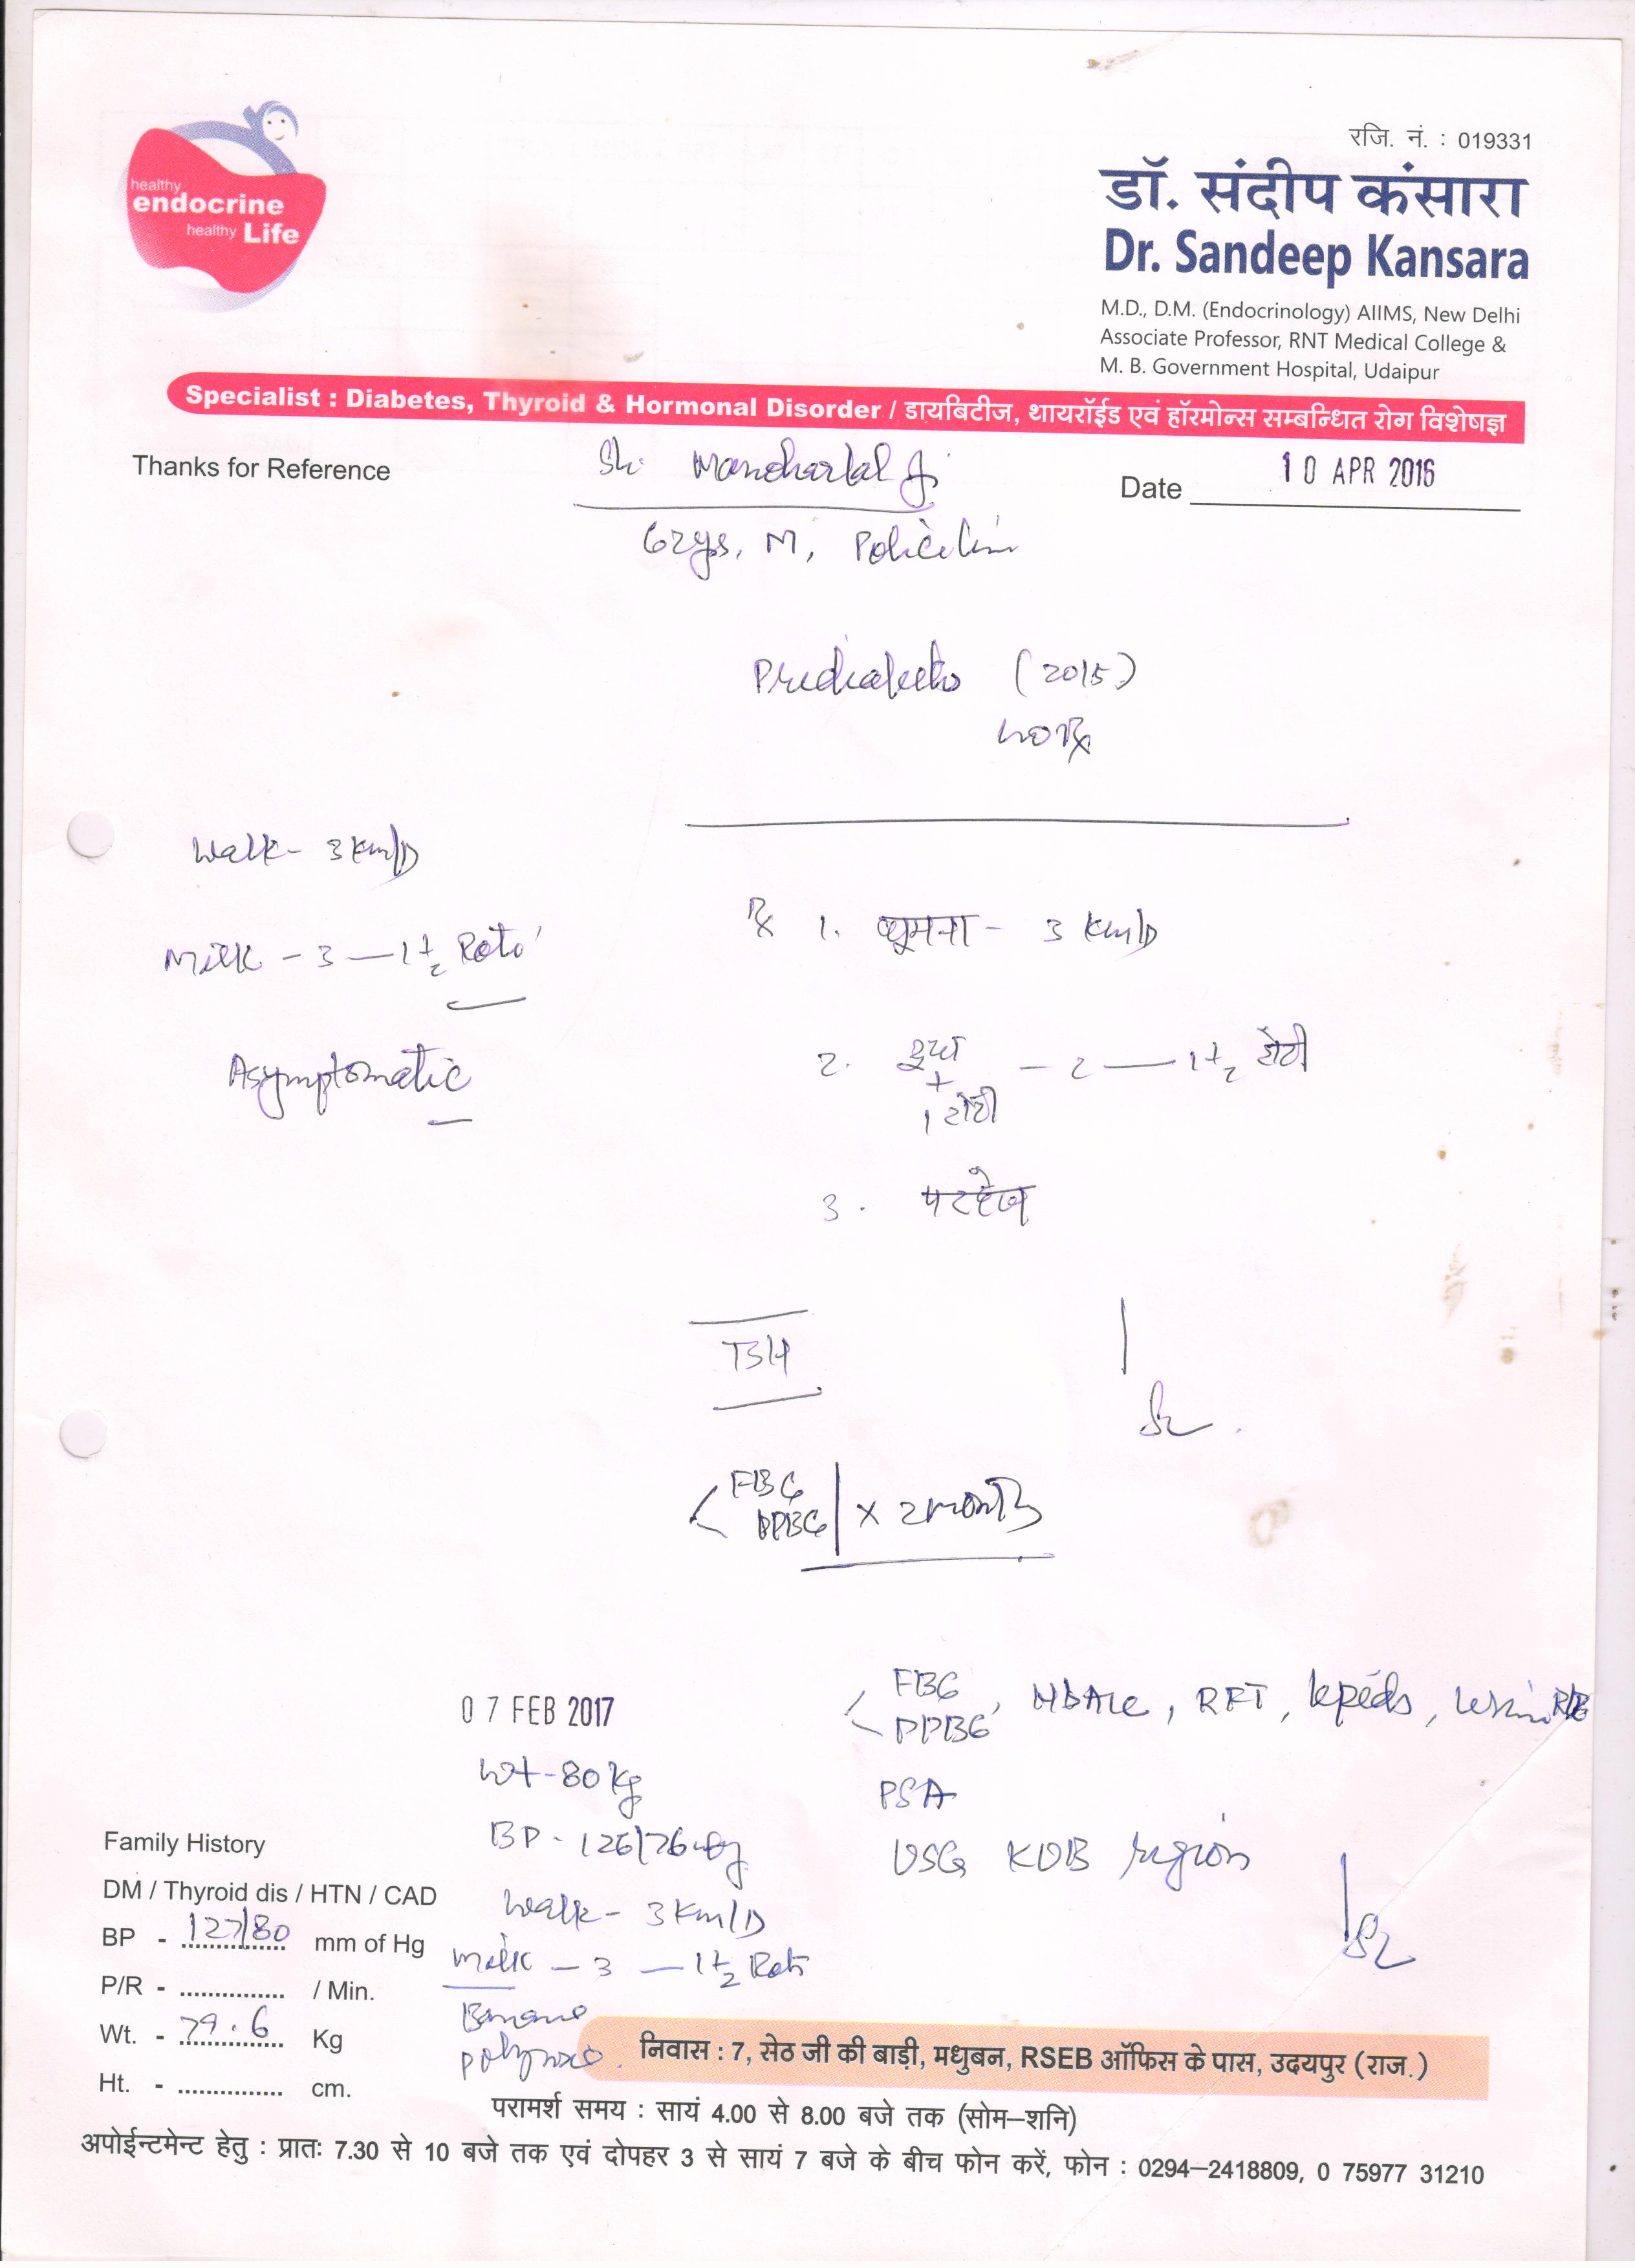 healthy
endocrine
healthy Life
रजि. नं. : 019331
डॉ. संदीप कंसारा
Dr. Sandeep Kansara
M.D., D.M. (Endocrinology) AIIMS, New Delhi
Associate Professor, RNT Medical College &
M. B. Government Hospital, Udaipur
Specialist : Diabetes, Thyroid & Hormonal Disorder / डायबिटीज, थायरॉईड एवं हॉरमोन्स सम्बन्धित रोग विशेषज्ञ
Thanks for Reference
Sh. Manoharlal Ji
Date 10 APR 2016
62ys, M, Policeline
Prediabetes (2015)
no Rx
Walk - 3 Km/D
Milk - 3 — 1+2 Roti
Asymptomatic
Rx 1. घूमना - 3 Km/D
2. दूध + 1 रोटी - 2 — 1+2 रोटी
3. परहेज
TSH
FBG
PPBG x 2 month
07 FEB 2017
Wt - 80 kg
BP - 126/76
Walk - 3 Km/D
Milk - 3 — 1+2 Roti
Banana
FBG
PPBG, HbA1c, RFT, lipids, Urine
PSA
USG KUB region
Family History
DM / Thyroid dis / HTN / CAD
BP - 127/80 mm of Hg
P/R - / Min.
Wt. - 79.6 Kg
Ht. - cm.
निवास : 7, सेठ जी की बाड़ी, मधुबन, RSEB ऑफिस के पास, उदयपुर (राज.)
परामर्श समय : सायं 4.00 से 8.00 बजे तक (सोम–शनि)
अपोईन्टमेन्ट हेतु : प्रातः 7.30 से 10 बजे तक एवं दोपहर 3 से सायं 7 बजे के बीच फोन करें, फोन : 0294–2418809, 0 75977 31210